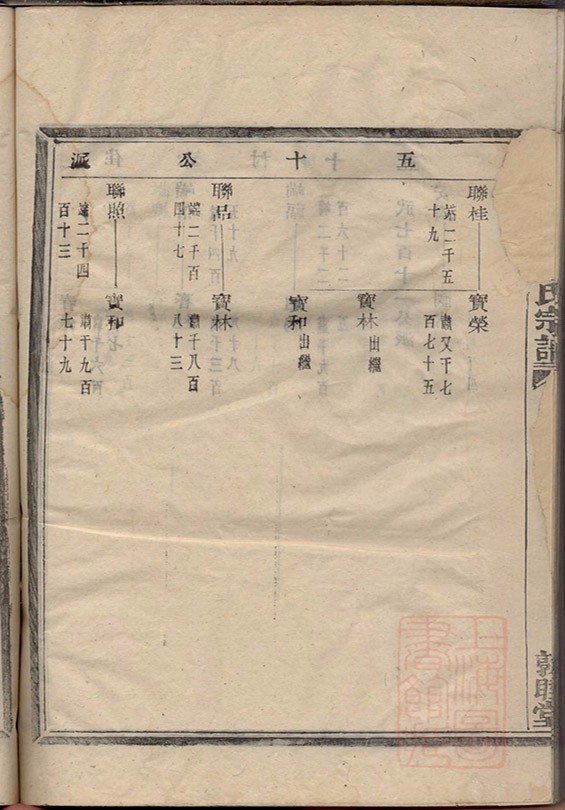 五十公派
聯桂
端二千五
十九
寶榮
肅又千七
百七十五
寶林
出繼
寶和
出繼
聯品
端二千百
四十七
寶林
肅千八百
八十三
聯照
端二千四
百十三
寶和
肅千九百
七十九
氏宗譜
敦睦堂
上海圖書館藏